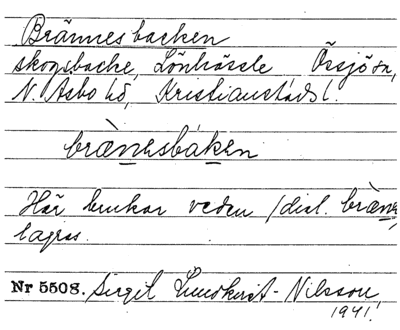 Brännesbacken
skogsbacke, Lönhässle Össjö sn,
N. Åsbo hd, Kristianstads l.
bræ̀nesbáken
Här brukar veden (dial. bræ̀ne)
lagras.
Nr 5508. Sirgit Lundkvist-Nilsson,
1941.